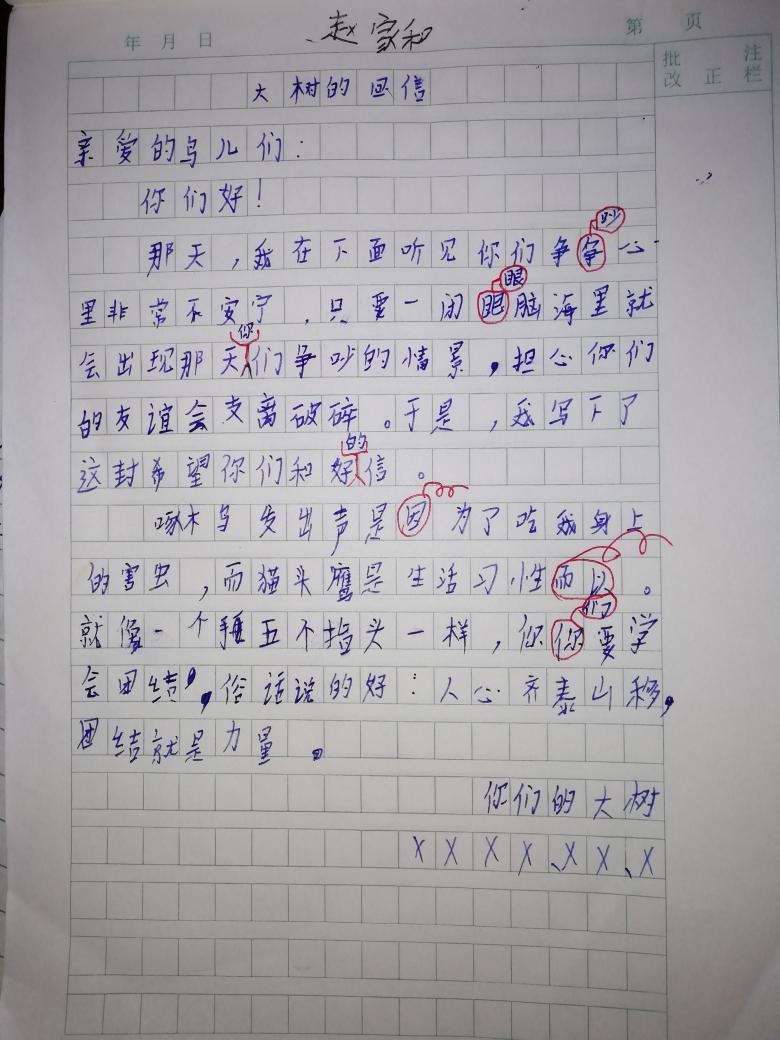 赵家和
年 月 日
第 页
批 注
改 正 栏
大树的回信
亲爱的鸟儿们：
你们好！
吵
那天，我在下面听见你们争争心
眼
里非常不安宁，只要一闭眼脑海里就
你
会出现那天们争吵的情景，担心你们
的友谊会支离破碎。于是，我写下了
的
这封希望你们和好信。
啄木鸟发出声是因为了吃我身上
的害虫，而猫头鹰是生活习性而以。
们
就像一个手五个指头一样，你你要学
会团结，俗话说的好：人心齐泰山移，
团结就是力量。
你们的大树
X X X X、X X、X